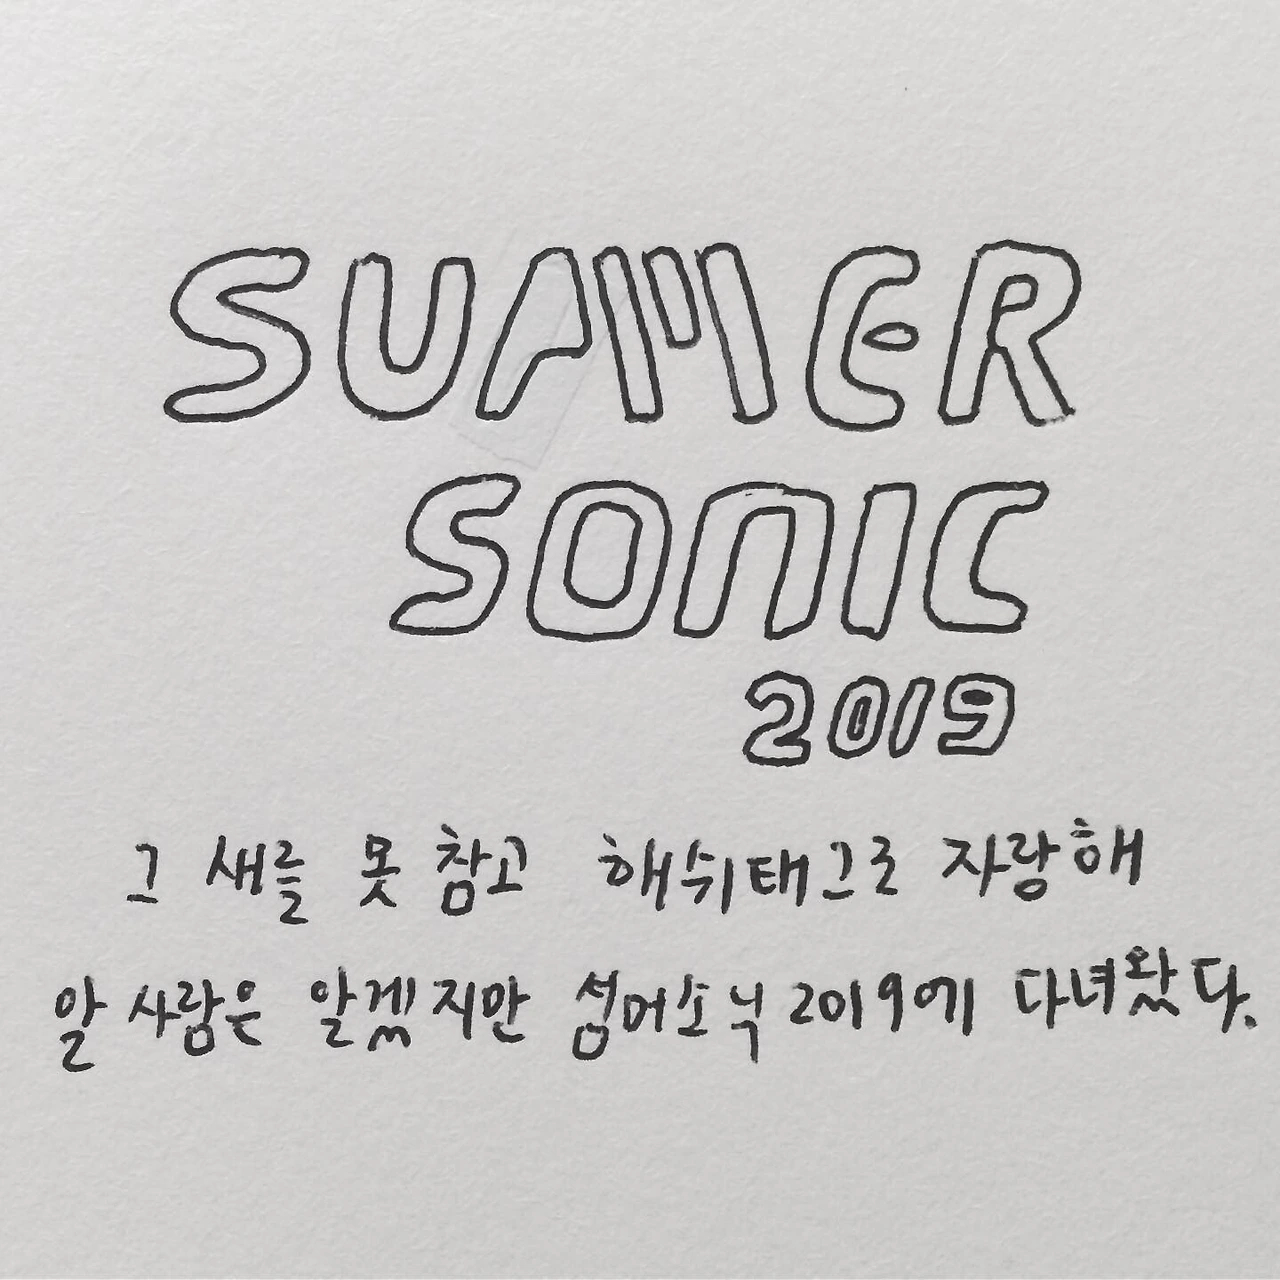 SUMMER
SONIC
2019
그 새를 못 참고 해쉬태그로 자랑해
알 사람은 알겠지만 섬머소닉 2019에 다녀왔다.